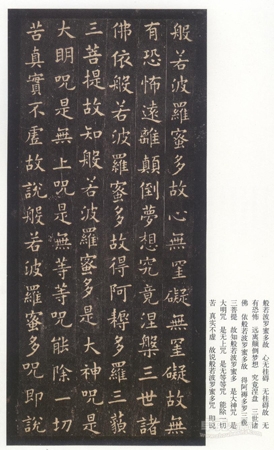 般若波罗蜜多故 心无挂碍 无挂碍故 无
有恐怖 远离颠倒梦想 究竟涅盘 三世诸
佛 依般若波罗蜜多故 得阿耨多罗三藐
三菩提 故知般若波罗蜜多 是大神咒 是
大明咒 是无上咒 是无等等咒 能除一切
苦 真实不虚 故说般若波罗蜜多咒 即说
般若波羅蜜多故心無罣礙無罣礙故無
有恐怖遠離顛倒夢想究竟涅槃三世諸
佛依般若波羅蜜多故得阿耨多羅三藐
三菩提故知般若波羅蜜多是大神咒是
大明咒是無上咒是無等等咒能除一切
苦真實不虛故說般若波羅蜜多咒即說